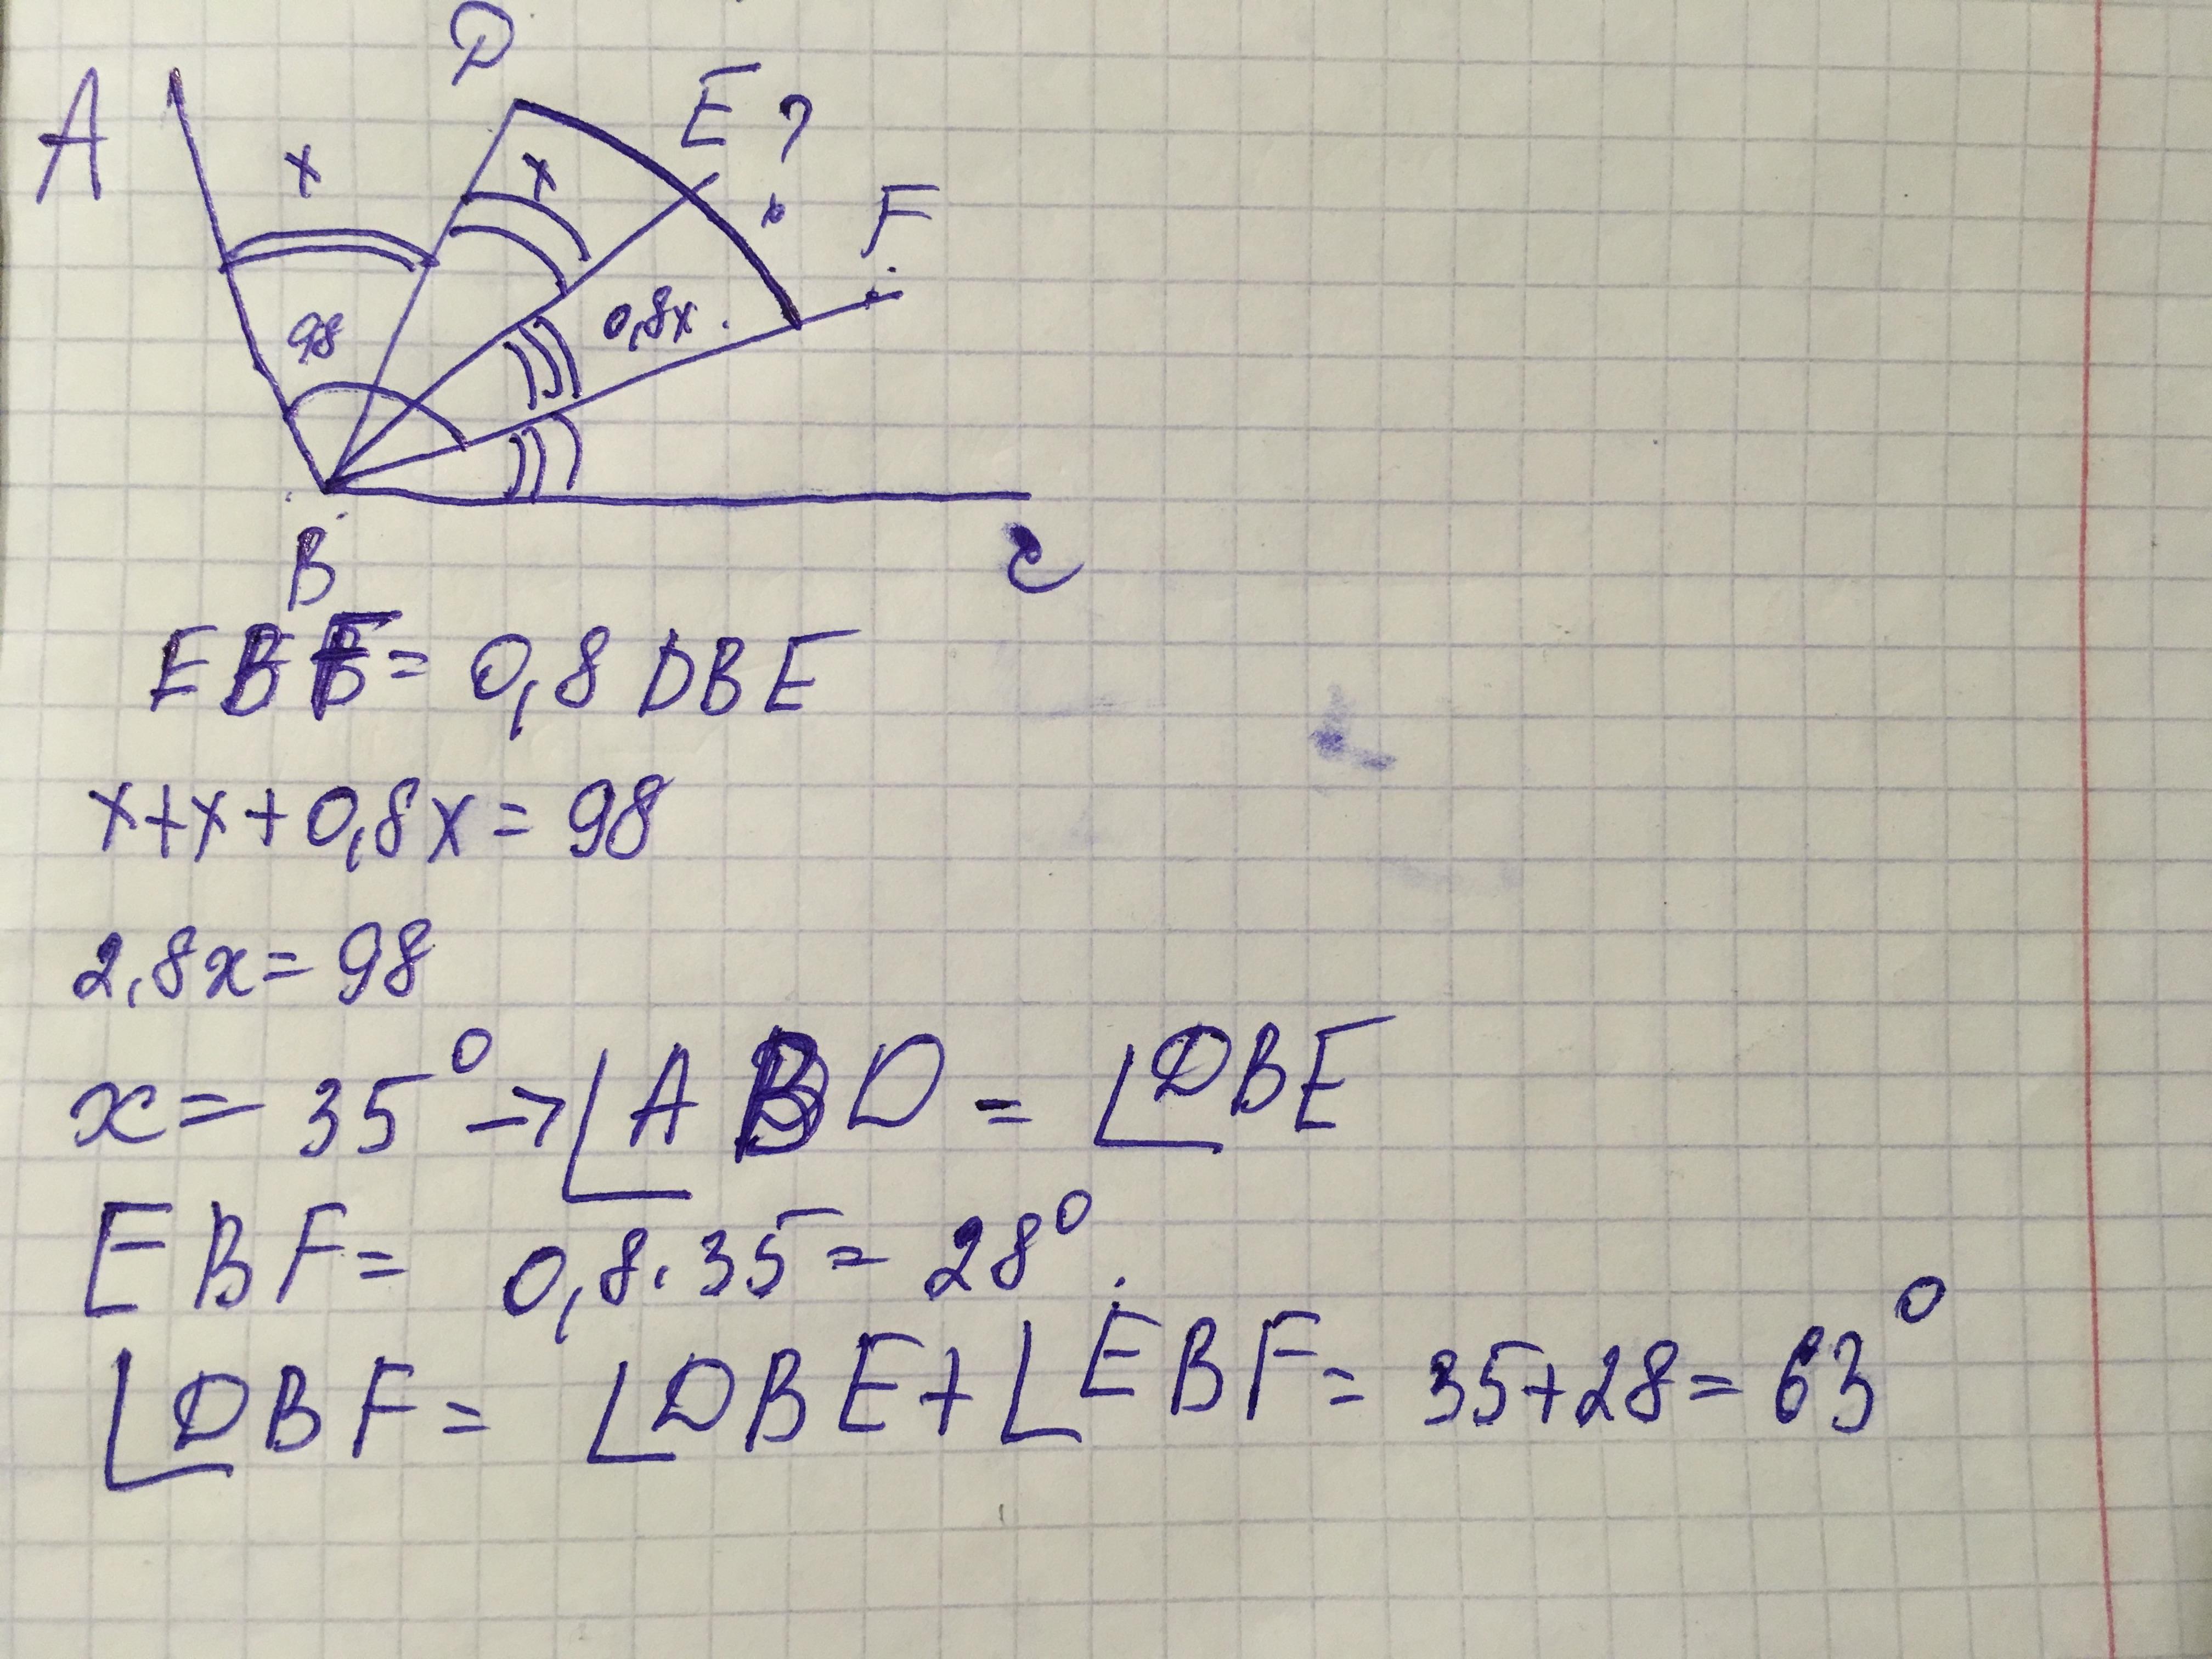 D
A
x
x
E ?
F
98
0,8x
B
C
EBF = 0,8 DBE
x+x+0,8x = 98
2,8x = 98
x = 35° → ∠ABD = ∠DBE
EBF = 0,8·35 = 28°
∠DBF = ∠DBE + ∠EBF = 35+28 = 63°